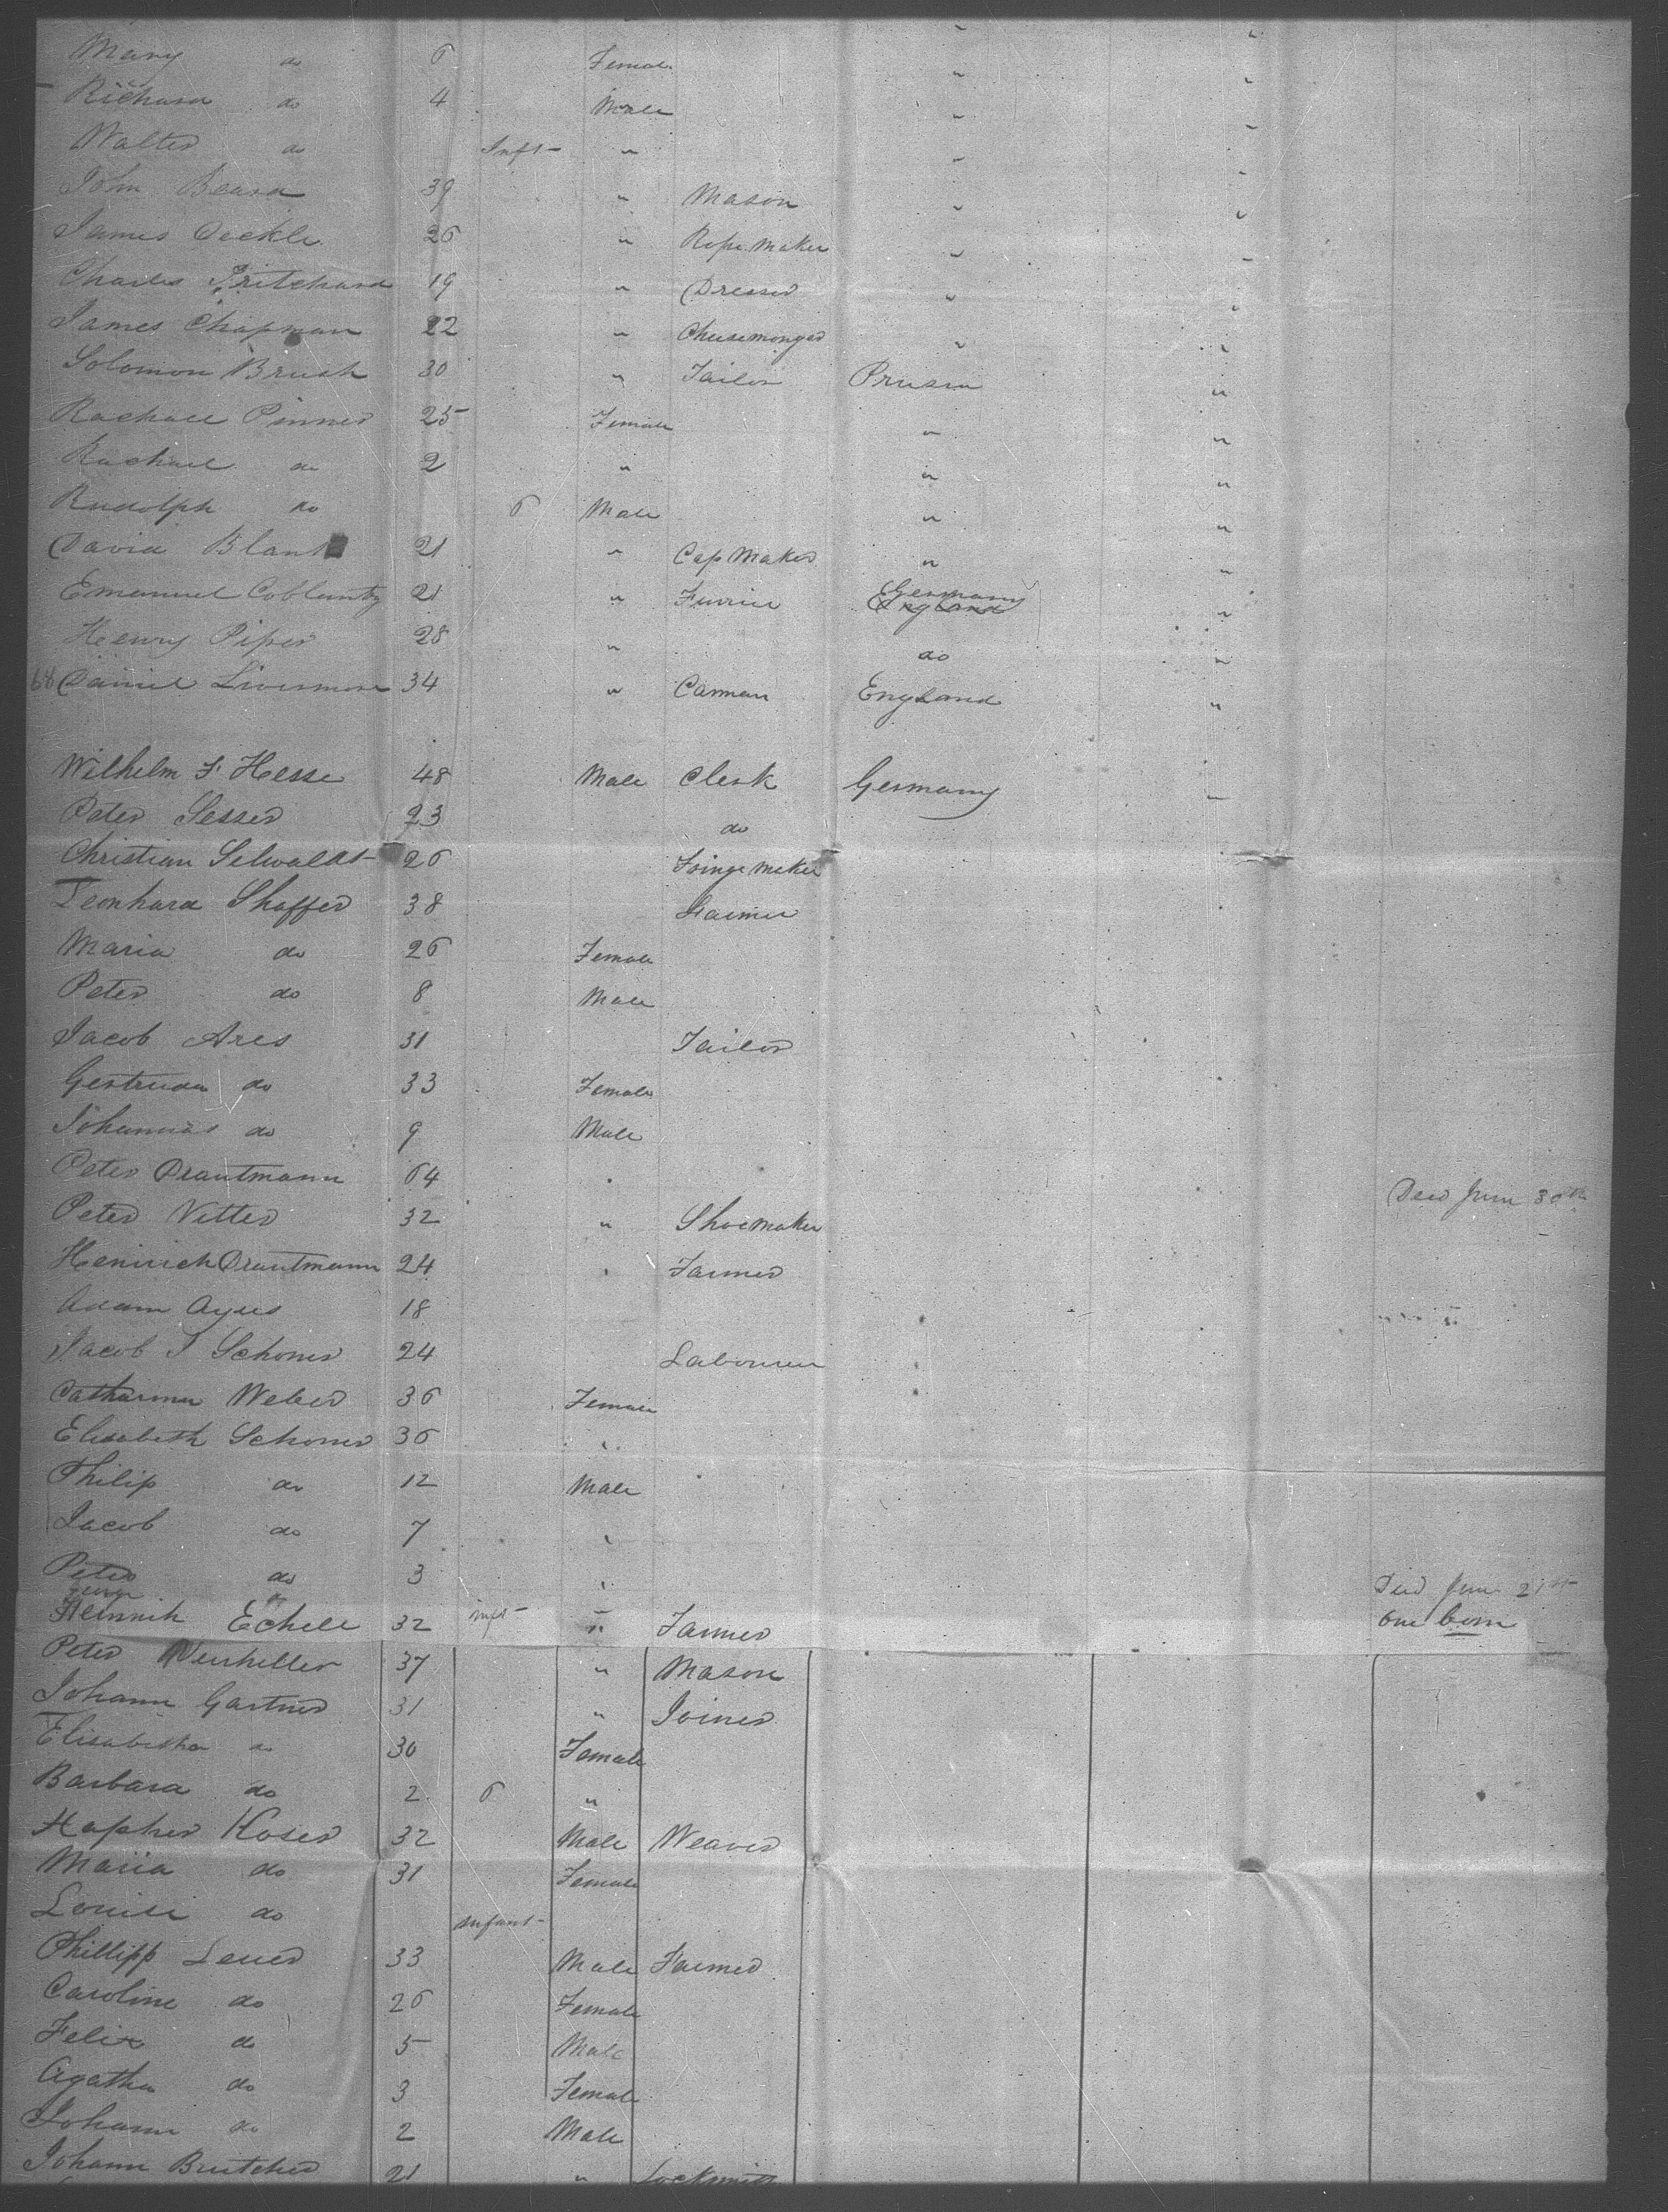 Mary do 6 Female "
Richard do 4 Male " "
Walter do Inft " " "
John Beard 39 " Mason " "
James Deckle 26 " Rope Maker " "
Charles Pritchard 19 " Dresser " "
James Chapman 22 " Cheesemonger " "
Solomon Brush 30 " Tailor Prusia "
Rachael Pinner 25 Female " "
Rachael do 2 " " "
Rudolph do 6 Male " "
David Blank 21 " Cap Maker " "
Emanuel Coblentz 21 " Furrier Germany England "
Henry Piper 28 " do "
68 Daniel Livermore 34 " Carman England "
Wilhelm F Hesse 48 Male Clerk Germany "
Peter Sesser 23 do
Christian 26 Fringe Maker
Leonhard Shaffer 38 Farmer
Maria do 26 Female
Peter do 8 Male
Jacob Ares 31 Tailor
Gertruda do 33 Female
Johannas do 9 Male
Peter Drautmann 64 " Died June 30th
Peter Vetter 32 " Shoemaker
Heinrich Drautmann 24 " Farmer
Adam Ayres 18
Jacob J Schoner 24 Labourer
Catharina Weber 36 Female
Elisabeth Schoner 36 "
Philip do 12 Male
Jacob do 7 "
Peter do 3 " Died June 21st
George do inft " One born
Heinrich Echele 32 " Farmer
Peter Neuheller 37 " Mason
Johann Gartner 31 " Joiner
Elisabetha do 30 Female
Barbara do 2 6 "
Koser 32 Male Weaver
Maria do 31 Female
Louise do Infant
Phillipp Leuer 33 Male Farmer
Caroline do 26 Female
Felix do 5 Male
Agatha do 3 Female
Johann do 2 Male
Johann Brutcher 21 " Locksmith